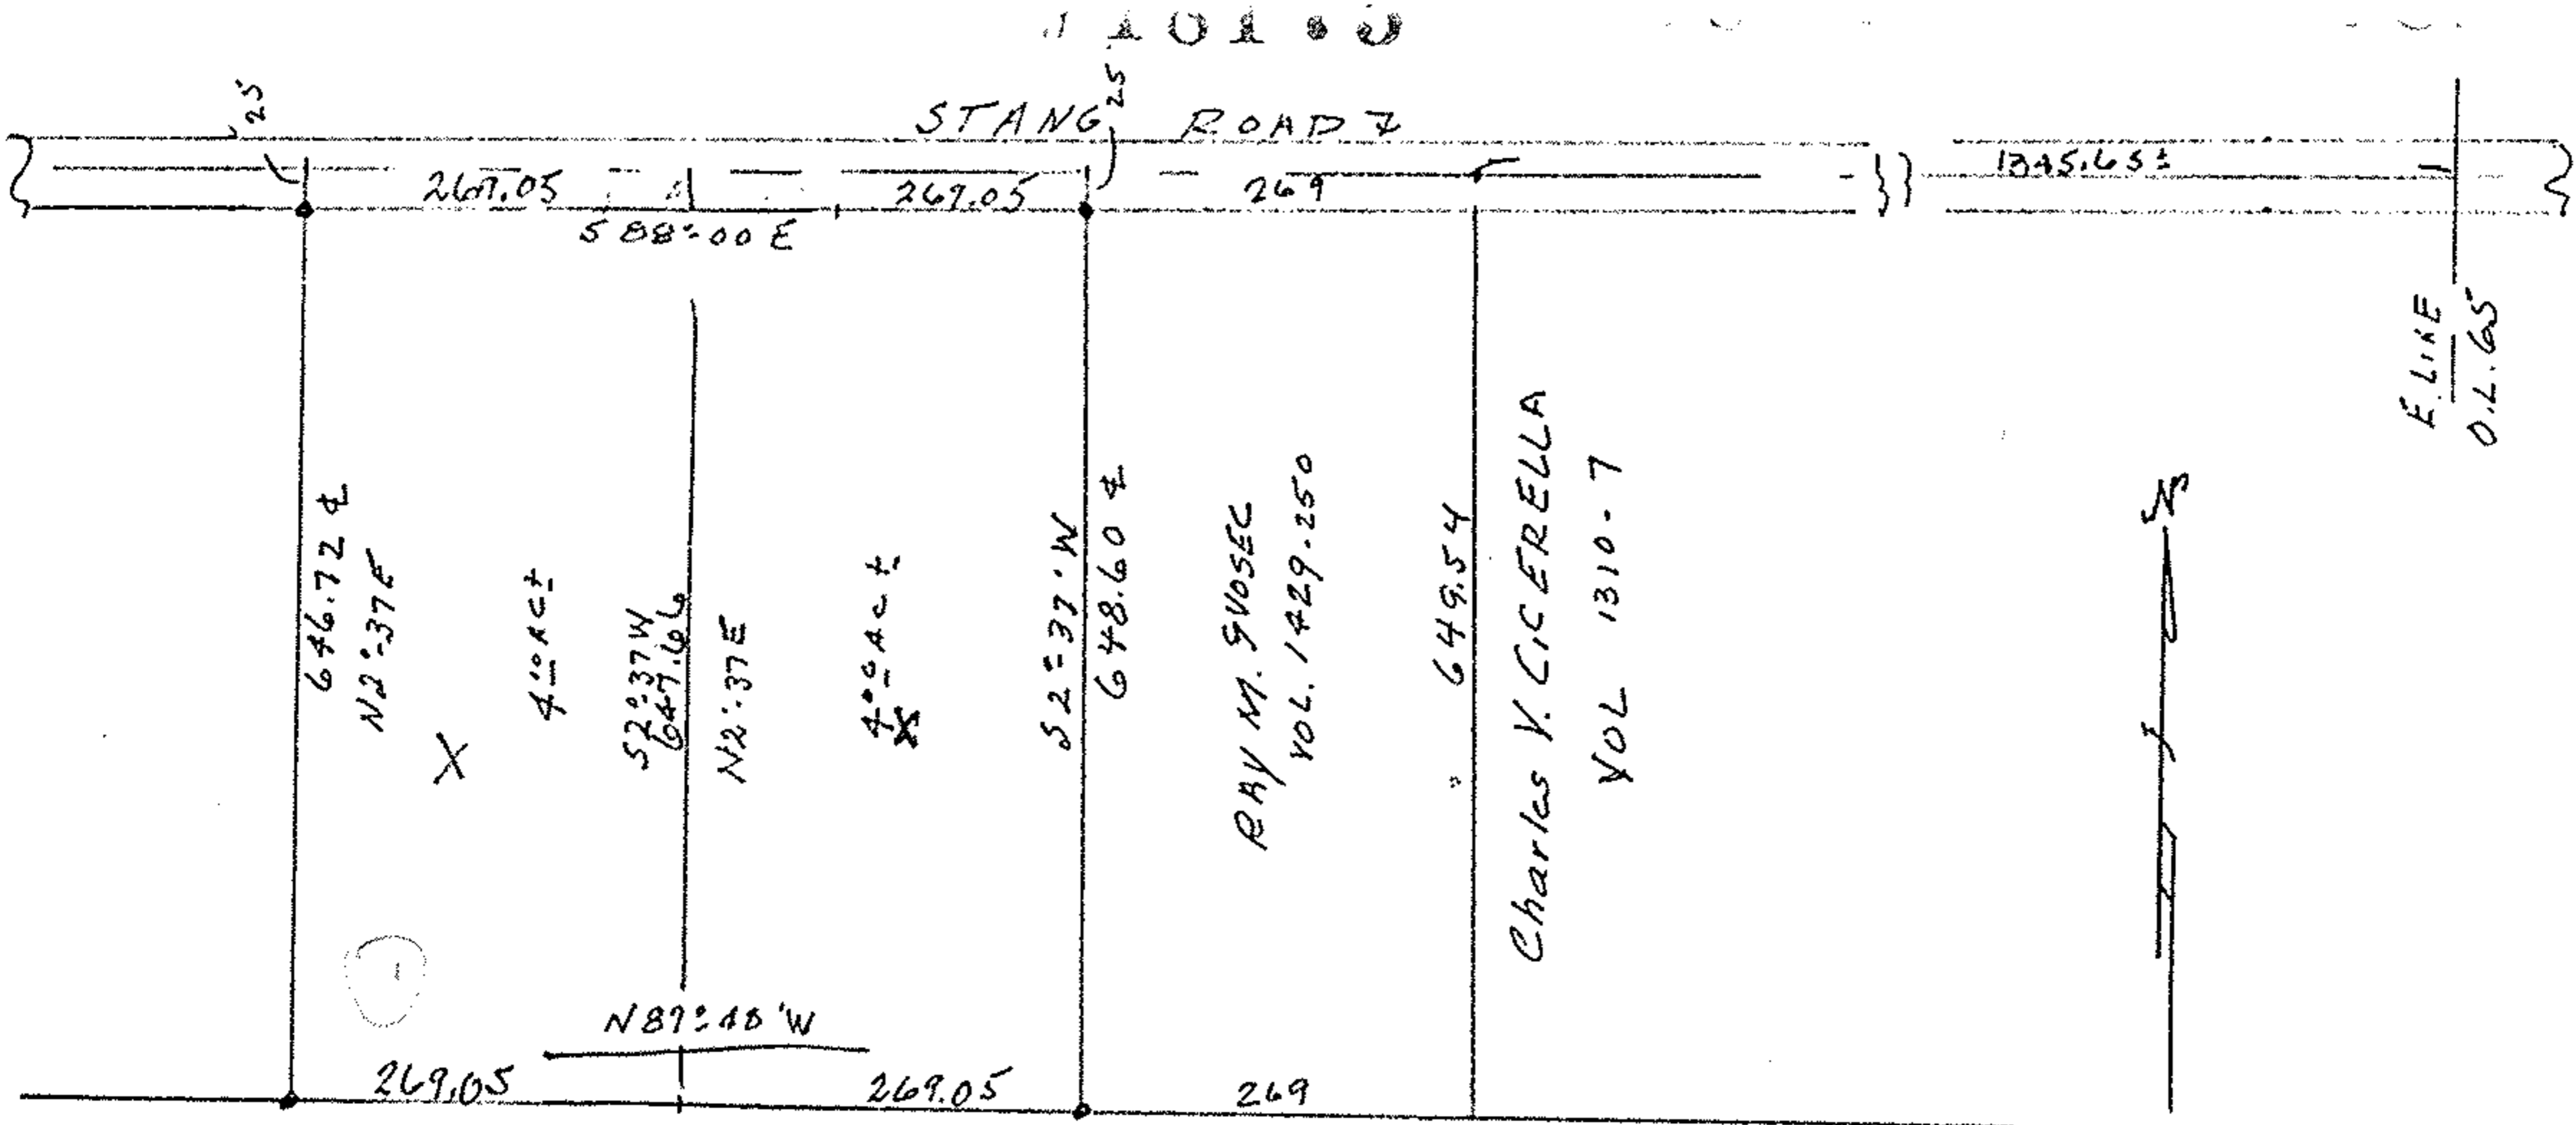 25
STANG ROAD
25
1345.65±
269.05
269.05
269
S 88°-00 E
E. LINE
O.L. 65
646.72 ℄
N2°-37E
4.00 Ac±
S2°-37W
647.66
N2°-37E
4.00 Ac±
S2°-37'W
648.60 ℄
RAY M. GVOSEC
VOL. 1429-250
649.54
Charles V. CiCERELLA
VOL 1310-7
N
X
X
N87°-48'W
269.05
269.05
269